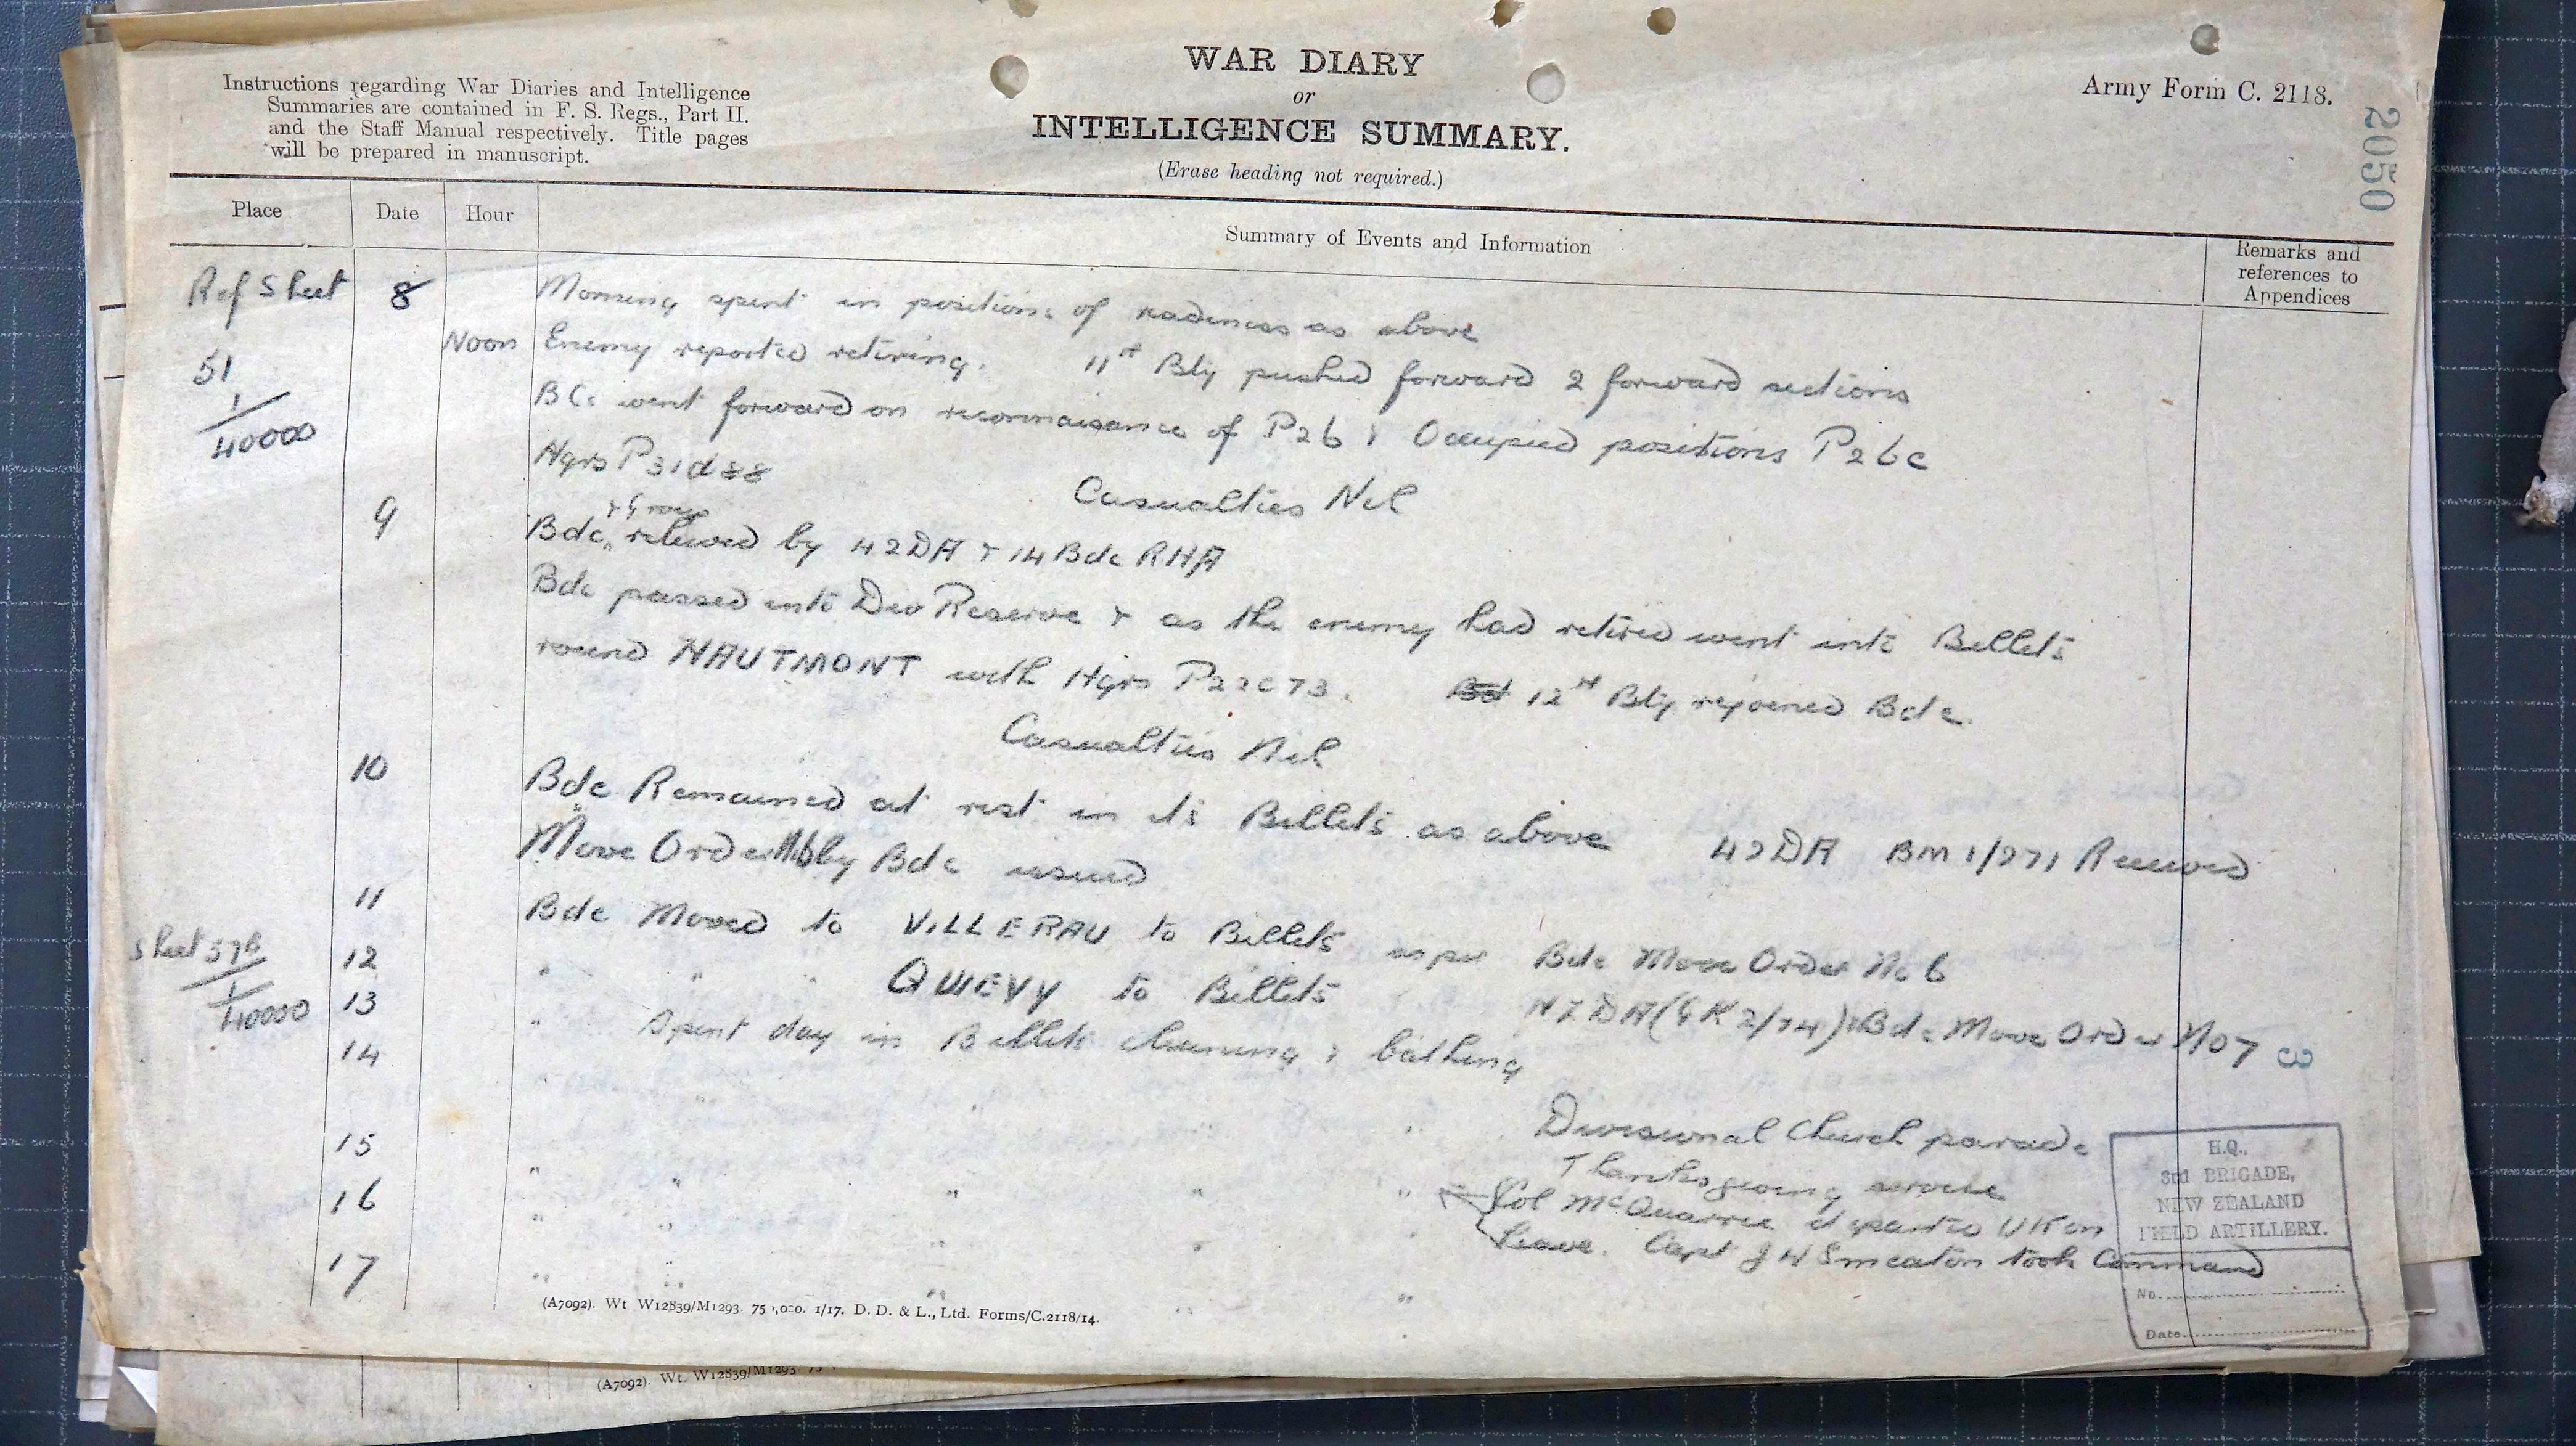 Instructions regarding War Diaries and Intelligence
Summaries are contained in F. S. Regs., Part II.
and the Staff Manual respectively. Title pages
will be prepared in manuscript.
WAR DIARY
or
INTELLIGENCE SUMMARY.
(Erase heading not required.)
Army Form C. 2118.
2050
Place Date Hour Summary of Events and Information Remarks and references to Appendices
Ref Sheet 8 Morning spent in positions of readiness as above
51 Noon Enemy reported retiring. 11th Bty pushed forward 2 forward sections
1/40000 BCs went forward on reconnaisance of P26 & Occupied positions P26c
Hqrs P31d88
Casualties Nil
& Group
9 Bde relieved by 42DA & 14 Bde RHA
Bde passed into Div Reserve & as the enemy had retired went into Billets
round HAUTMONT with Hqrs P22c73. 12th Bty rejoined Bde.
Casualties Nil
10 Bde Remained at rest in its Billets as above 42DA BM 1/271 Received
Move Order No 6 by Bde issued
11 Bde Moved to VILLERAU to Billets as per Bde Move Order No 6
Sheet 57B 12 " " " QUIEVY to Billets NZDA (GK2/74) & Bde Move Order No 7
1/40000 13 " Spent day in Billets cleaning & bathing
3
14 " " " " " Divisional Church parade
Thanksgiving service
15 " " " " "
16 " " " " " Col McQuarrie departed UK on
leave. Capt J H Smeaton took Command
17 " " " " "
H.Q.,
3rd BRIGADE,
NEW ZEALAND
FIELD ARTILLERY.
No.
Date
(A7092). Wt W12839/M1293. 75 ,000. 1/17. D. D. & L., Ltd. Forms/C.2118/14.
(A7092). Wt. W12839/M1293. 75